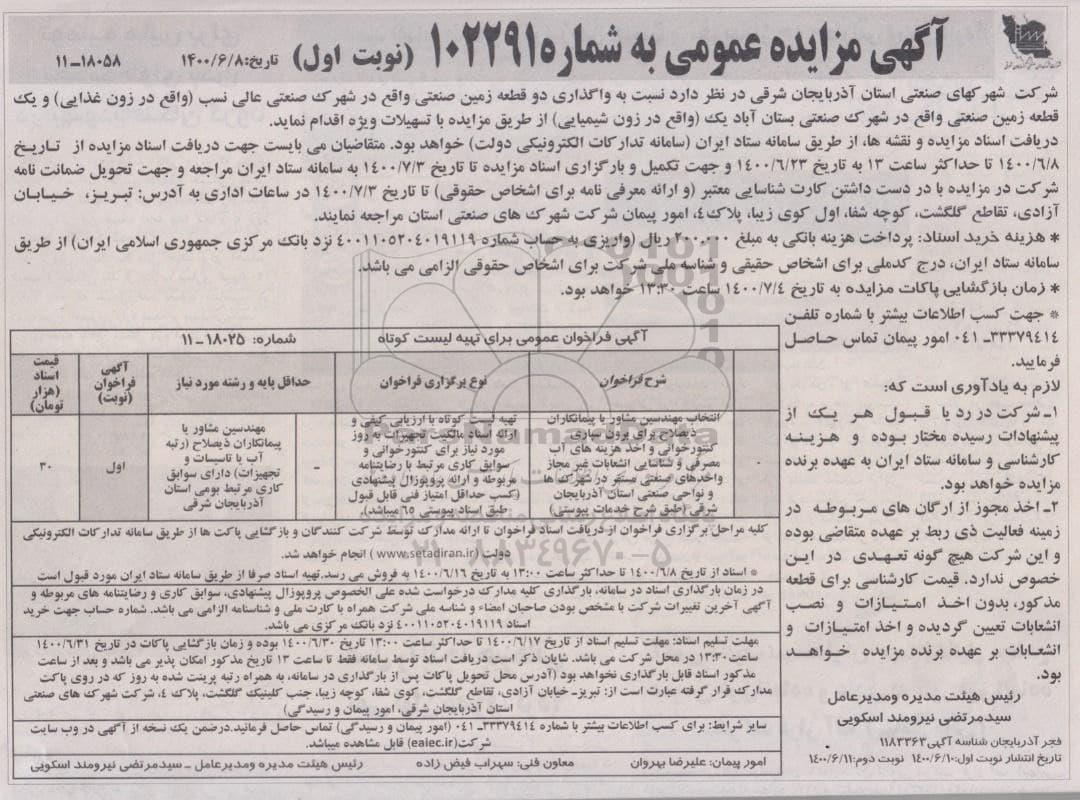 آگهی مزایده عمومی به شماره ۱۰۲۲۹۱ (نوبت اول) تاریخ:۱۴۰۰/۶/۸ ۱۸۰۵۸-۱۱
شرکت شهرکهای صنعتی استان آذربایجان شرقی در نظر دارد نسبت به واگذاری دو قطعه زمین صنعتی واقع در شهرک صنعتی عالی نسب (واقع در زون غذایی) و یک
قطعه زمین صنعتی واقع در شهرک صنعتی بستان آباد یک (واقع در زون شیمیایی) از طریق مزایده با تسهیلات ویژه اقدام نماید.
دریافت اسناد مزایده و نقشه ها، از طریق سامانه ستاد ایران (سامانه تدارکات الکترونیکی دولت) خواهد بود. متقاضیان می بایست جهت دریافت اسناد مزایده از تاریخ
۱۴۰۰/۶/۸ تا حداکثر ساعت ۱۳ به تاریخ ۱۴۰۰/۶/۲۳ و جهت تکمیل و بارگزاری اسناد مزایده تا تاریخ ۱۴۰۰/۷/۳ به سامانه ستاد ایران مراجعه و جهت تحویل ضمانت نامه
شرکت در مزایده با در دست داشتن کارت شناسایی معتبر (و ارائه معرفی نامه برای اشخاص حقوقی) تا تاریخ ۱۴۰۰/۷/۳ در ساعات اداری به آدرس: تبریز، خیابان
آزادی، تقاطع گلگشت، کوچه شفا، اول کوی زیبا، پلاک۴، امور پیمان شرکت شهرک های صنعتی استان مراجعه نمایند.
* هزینه خرید اسناد: پرداخت هزینه بانکی به مبلغ ۲۰۰,۰۰۰ ریال (واریزی به حساب شماره ۴۰۰۱۱۰۵۲۰۴۰۱۹۱۱۹ نزد بانک مرکزی جمهوری اسلامی ایران) از طریق
سامانه ستاد ایران، درج کدملی برای اشخاص حقیقی و شناسه ملی شرکت برای اشخاص حقوقی الزامی می باشد.
* زمان بازگشایی پاکات مزایده به تاریخ ۱۴۰۰/۷/۴ ساعت ۱۳:۳۰ خواهد بود.
* جهت کسب اطلاعات بیشتر با شماره تلفن
۳۳۳۷۹۴۱۴-۰۴۱ امور پیمان تماس حاصل
فرمایید.
لازم به یادآوری است که:
۱- شرکت در رد یا قبول هر یک از
پیشنهادات رسیده مختار بوده و هزینه
کارشناسی و سامانه ستاد ایران به عهده برنده
مزایده خواهد بود.
۲- اخذ مجوز از ارگان های مربوطه در
زمینه فعالیت ذی ربط بر عهده متقاضی بوده
و این شرکت هیچ گونه تعهدی در این
خصوص ندارد. قیمت کارشناسی برای قطعه
مذکور، بدون اخذ امتیازات و نصب
انشعابات تعیین گردیده و اخذ امتیازات و
انشعابات بر عهده برنده مزایده خواهد
بود.
رئیس هیئت مدیره ومدیرعامل
سیدمرتضی نیرومند اسکویی
فجر آذربایجان شناسه آگهی۱۱۸۳۳۶۳
تاریخ انتشار نوبت اول:۱۴۰۰/۶/۱۰ نوبت دوم:۱۴۰۰/۶/۱۱
آگهی فراخوان عمومی برای تهیه لیست کوتاه شماره: ۱۸۰۲۵-۱۱
شرح فراخوان
نوع برگزاری فراخوان
حداقل پایه و رشته مورد نیاز
آگهی
فراخوان
(نوبت)
قیمت
اسناد
(هزار
تومان)
انتخاب مهندسین مشاور یا پیمانکاران
ذیصلاح برای برون سپاری
کنتورخوانی و اخذ هزینه های آب
مصرفی و شناسایی انشعابات غیر مجاز
واحدهای صنعتی مستقر در شهرک ها
و نواحی صنعتی استان آذربایجان
شرقی (طبق شرح خدمات پیوستی)
تهیه لیست کوتاه با ارزیابی کیفی و
ارائه اسناد مالکیت تجهیزات به روز
مورد نیاز برای کنتورخوانی و
سوابق کاری مرتبط با رضایتنامه
مربوطه و ارائه پروپوزال پیشنهادی
(کسب حداقل امتیاز فنی قابل قبول
طبق اسناد پیوستی ۶۵ میباشد).
-
مهندسین مشاور یا
پیمانکاران ذیصلاح (رتبه
آب یا تاسیسات و
تجهیزات) دارای سوابق
کاری مرتبط بومی استان
آذربایجان شرقی
اول
۳۰
کلیه مراحل برگزاری فراخوان از دریافت اسناد فراخوان تا ارائه مدارک توسط شرکت کنندگان و بازگشایی پاکت ها از طریق سامانه تدارکات الکترونیکی
دولت (www.setadiran.ir) انجام خواهد شد.
* اسناد از تاریخ ۱۴۰۰/۶/۸ تا حداکثر ساعت ۱۳:۰۰ به تاریخ ۱۴۰۰/۶/۱۶ به فروش می رسد.تهیه اسناد صرفا از طریق سامانه ستاد ایران مورد قبول است
در زمان بارگذاری اسناد در سامانه، بارگذاری کلیه مدارک درخواست شده علی الخصوص پروپوزال پیشنهادی، سوابق کاری و رضایتنامه های مربوطه و
آگهی آخرین تغییرات شرکت با مشخص بودن صاحبان امضاء و شناسه ملی شرکت همراه با کارت ملی و شناسنامه الزامی می باشد. شماره حساب جهت خرید
اسناد ۴۰۰۱۱۰۵۲۰۴۰۱۹۱۱۹ نزد بانک مرکزی می باشد.
مهلت تسلیم اسناد: مهلت تسلیم اسناد از تاریخ ۱۴۰۰/۶/۱۷ تا حداکثر ساعت ۱۳:۰۰ تاریخ ۱۴۰۰/۶/۳۰ بوده و زمان بازگشایی پاکات در تاریخ ۱۴۰۰/۶/۳۱
ساعت۱۳:۳۰ در محل شرکت می باشد. شایان ذکر است دریافت اسناد توسط سامانه فقط تا ساعت ۱۳ تاریخ مذکور امکان پذیر می باشد و بعد از ساعت
مذکور اسناد قابل بارگذاری نخواهد بود (آدرس محل تحویل پاکات پس از بارگذاری در سامانه، به همراه رتبه پرینت شده به روز که در روی پاکت
مدارک قرار گرفته عبارت است از: تبریز- خیابان آزادی، تقاطع گلگشت، کوی شفا، کوچه زیبا، جنب کلینیک گلگشت، پلاک ۴، شرکت شهرک های صنعتی
استان آذربایجان شرقی، امور پیمان و رسیدگی)
سایر شرایط: برای کسب اطلاعات بیشتر با شماره ۳۳۳۷۹۴۱۴-۰۴۱ (امور پیمان و رسیدگی) تماس حاصل فرمانید.درضمن یک نسخه از آگهی در وب سایت
شرکت(eaiec.ir) قابل مشاهده میباشد.
امور پیمان: علیرضا بهروان معاون فنی: سهراب فیض زاده رئیس هیئت مدیره ومدیرعامل - سیدمرتضی نیرومند اسکویی
۰۲۱-۸۸۳۴۹۶۷۰-۵